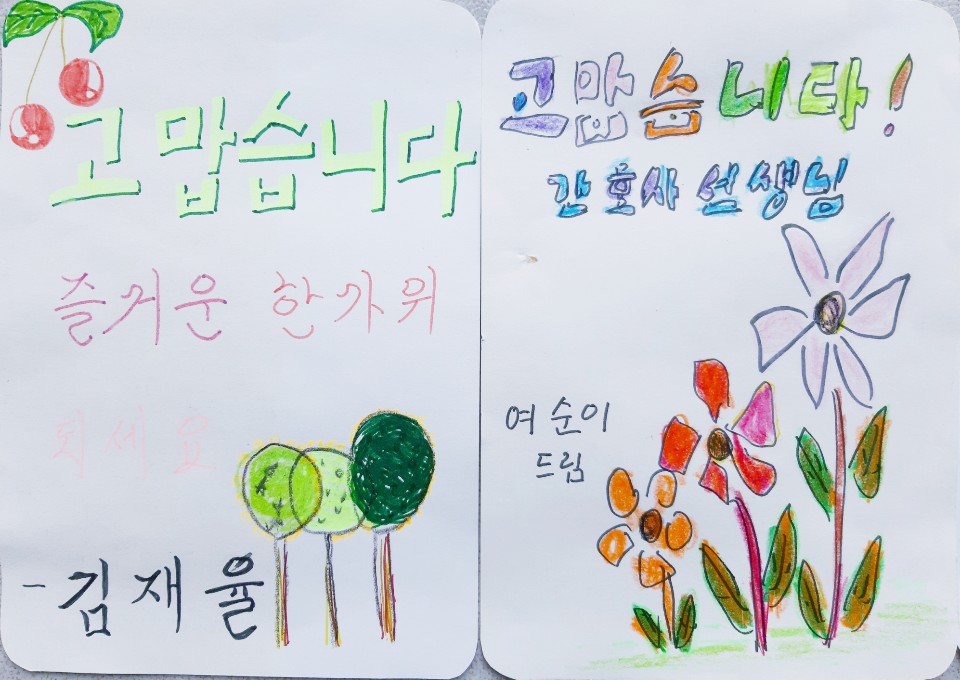 고맙습니다
즐거운 한가위
되세요
- 김재율
고맙습니다!
간호사 선생님
여순이
드림